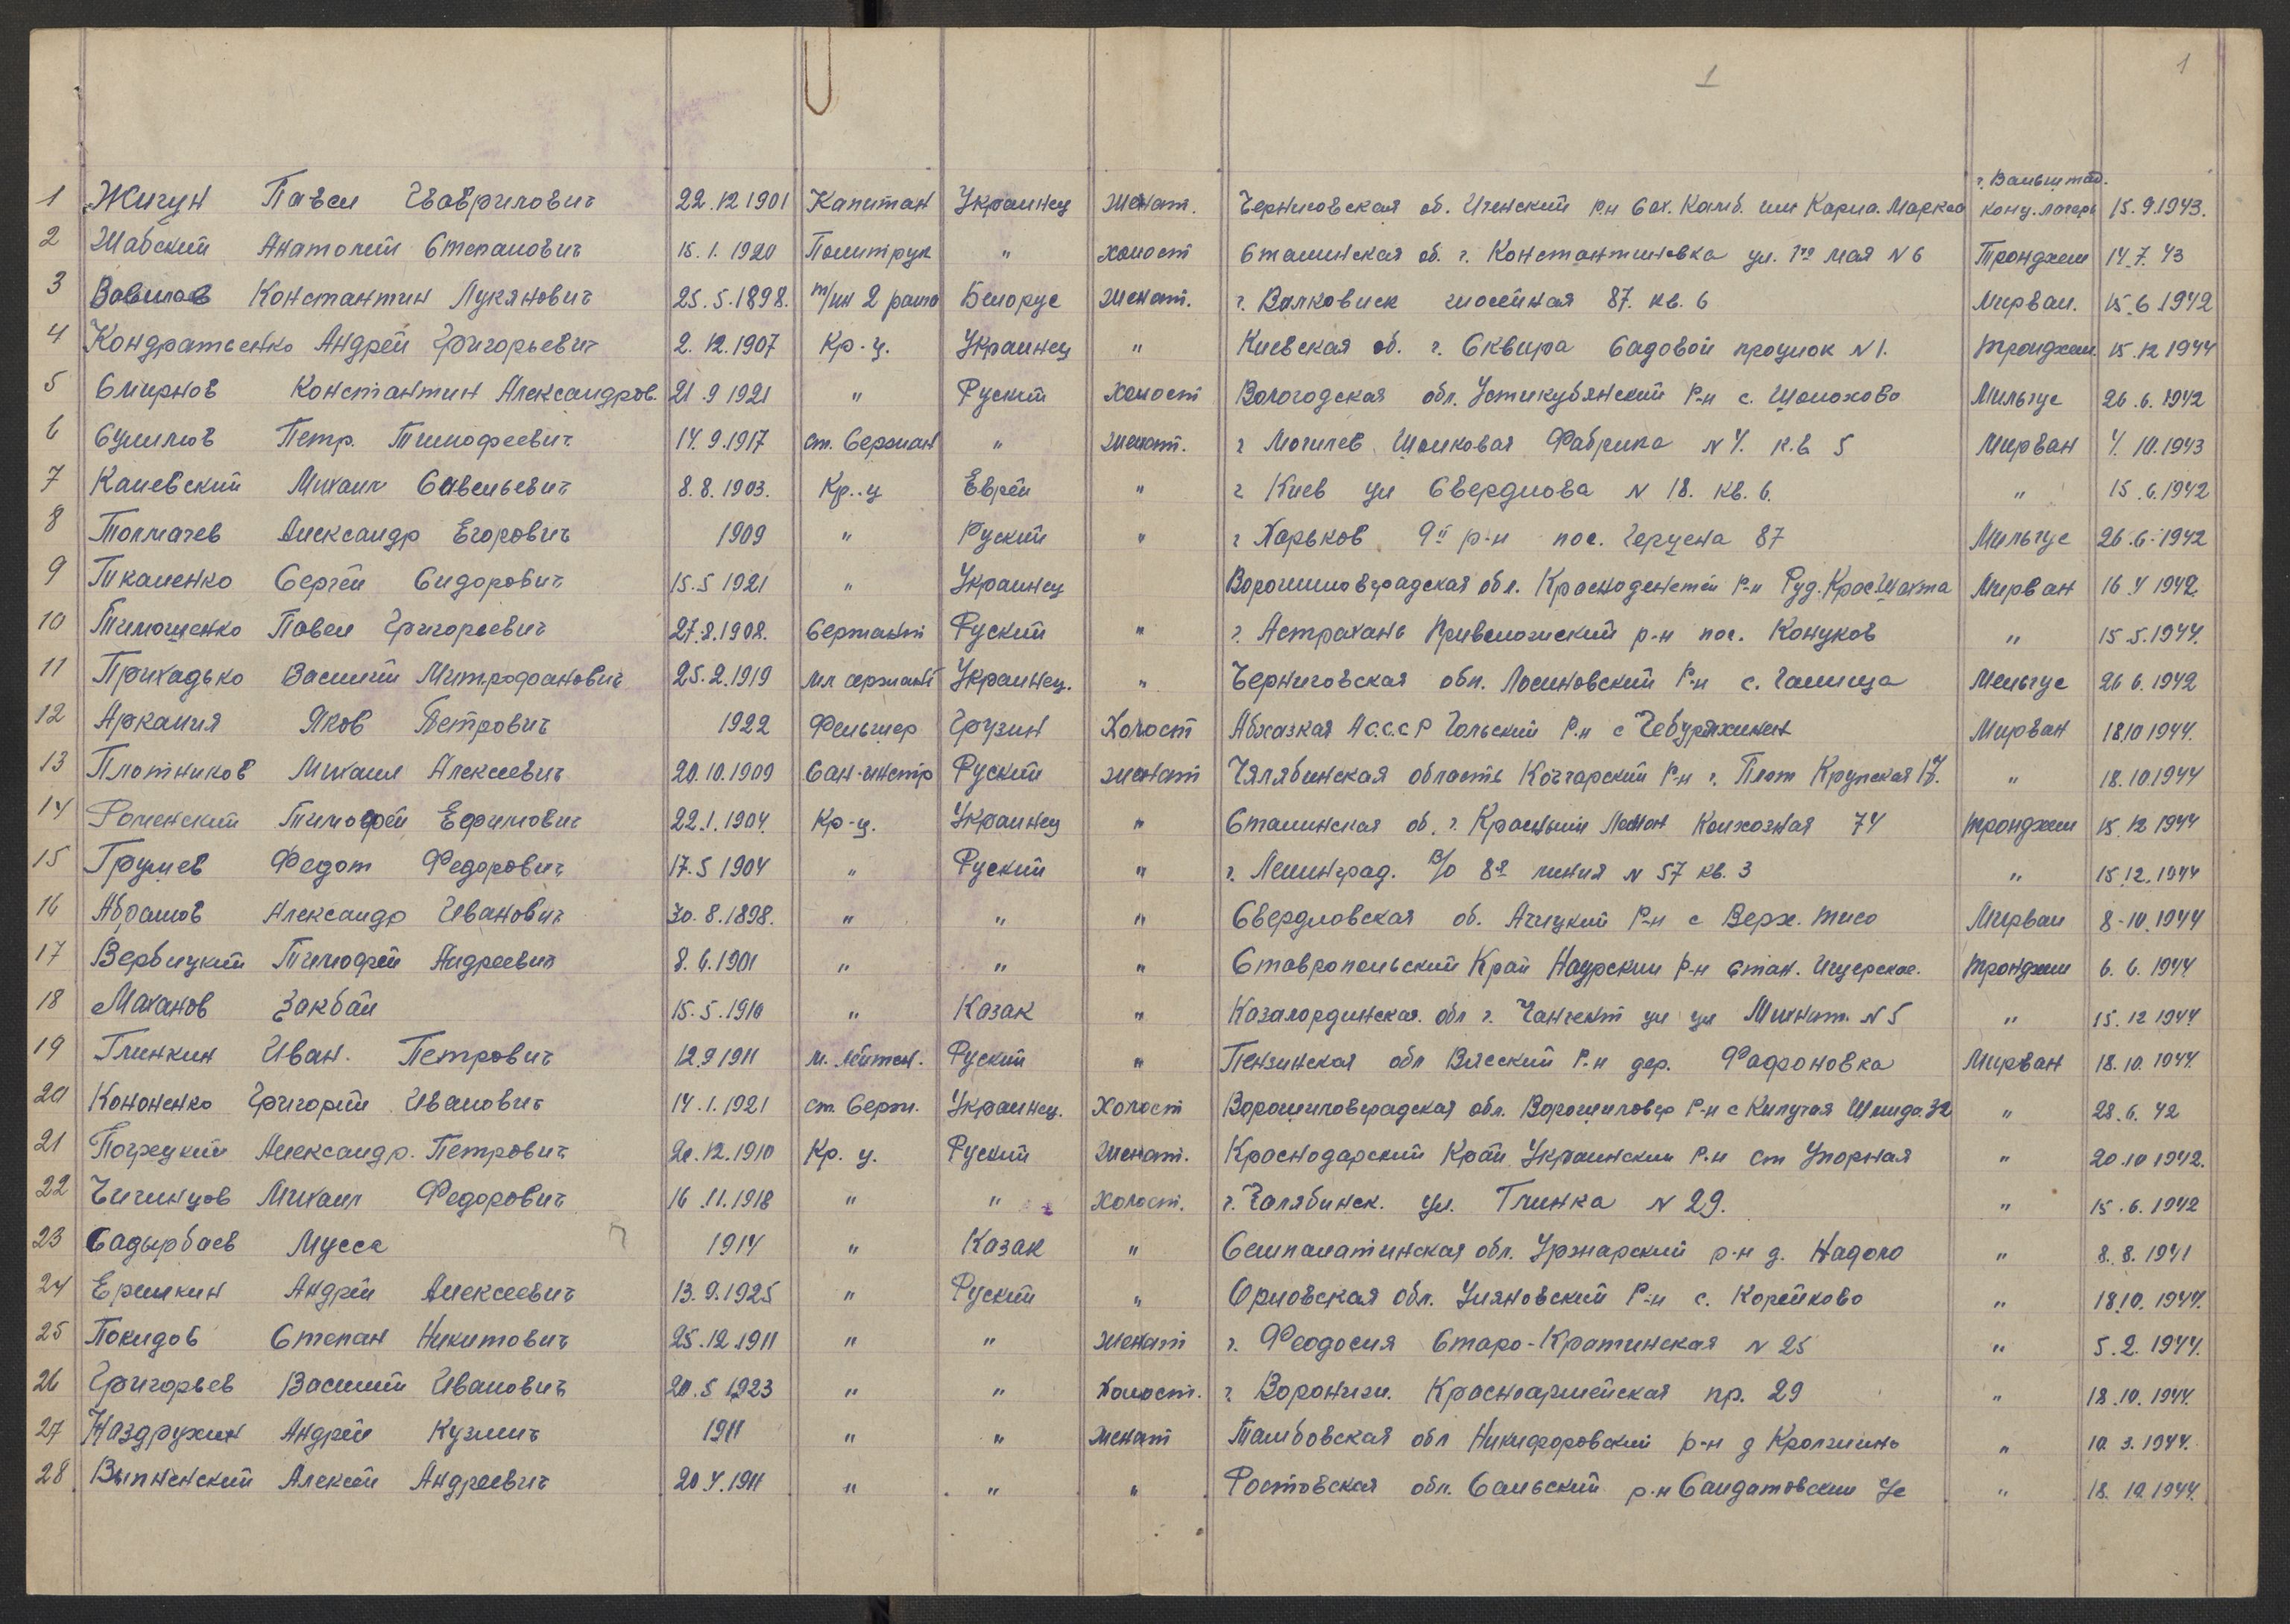 1 1
г. Вальштад.
1 Жигун Павел Гаврилович 22.12 1901 Капитан Украинец женат. Черниговская об. Иченский р.н Сах. Комб. им Карла. Маркса конц. лагерь 15.9.1943.
2 Жабский Анатолий Степанович 15.1.1920 Политрук " холост Сталинская об. г. Константиновка ул. 1го мая N 6 Тронджем 14.7.43
3 Вавилов Константин Лукянович 25.5.1898. т/ик 2 ранга Белорус женат. г. Валковиск шосейная 87. кв. 6 Мирван. 15.6.1942
4 Кондратьенко Андрей Григорьевич 2.12.1907 Кр-ц. Украинец " Киевская об. г. Сквира Садовой проулок N 1. тронджем. 15.12 1944
5 Смирнов Константин Александров. 21.9 1921 " Руский холост Вологодская обл. Устикубянский Р-н с. Шолохово Мильгус 26.6.1942
6 Сумилов Петр. Тимофеевич 14.9.1917 ст. Сержан " женат. г Могилев Шолковая Фабрика N 4. к.в 5 Мирван 4.10.1943
7 Каневский Михаил Савельевич 8.8.1903. Кр..ц Еврей " г. Киев ул Свердлова N 18. кв. 6. " 15.6.1942
8 Толмачев Александр Егорович 1909 " Руский " г Харьков 9й р-н пос. Герцена 87 Мильгус 26.6.1942
9 Ткаченко Сергей Сидорович 15.5 1921 " Украинец Ворошиловградская обл. Р-н Руд. Крас Шахта Мирван 16.4 1942.
10 Тимошенко Павел Григорьевич 27.8.1908. Сержант Руский " г. Астрахань р-н пос. Кануков " 15.5.1944.
11 Прихадько Василий Митрофанович 25.2.1919 мл сержант Украинец. " Черниговская обл. Лосиновский Р-н с. Галица Мельгус 26 6.1942
12 Аркания Яков Петрович 1922 Фельшер Грузин Холост Абхазкая А С.С.С Р Гольский Р.н с Мирван 18.10 1944.
13 Плотников Михаил Алексеевич 20.10.1909 Сан-инстр Руский женат Чялябинская область Кочгарский Р-н г. Пласт Крупская 17. " 18.10.1944
14 Роменский Тимофей Ефимович 22.1.1904. Кр-ц. Украинец " Сталинская об. г. Красный Лиман Колхозная 74 тронджем 15.12 1944
15 Грушев Федот Федорович 17.5 1904 " Руский " г. Ленинград. В/О 8я линия N 57 кв. 3 " 15.12.1944
16 Абрамов Александр Иванович 30.8.1898. " " " Свердловская об. Ачицкий Р-н с Верх. Тисо Мирван 8-10.1944
17 Вербицкий Тимофей Андреевич 8.6.1901 " " " Ставропольский Край Наурский Р-н стан. Ищерская. тронджем 6.6.1944
18 Маханов Закбай 15.5.1910 " Казак " Казалординская. обл г. ул ул N 5 " 15.12 1944
19 Глинкин Иван. Петрович 12.9 1911 м. лейтен. Руский " Пензинская обл Вясский Р.н дер. Фафоновка Мирван 18.10.1944.
20 Кононенко Григорий Иванович 14.1.1921 ст. Серж. Украинец. Холост Ворошиловградская обл. Ворошиловгр Р-н с Кипучая Шмидо. 32 " 28.6.42
21 Погрецкий Александр. Петрович 20.12.1910 Кр. ц. Руский женат. Краснодарский Край Украинский Р.н ст Упорная " 20.10 1942.
22 Чигинцов Михаил Федорович 16.11.1918 " " Холост. г. Чалябинск. ул. Глинка N 29. " 15.6.1942
23 Садырбаев Мусса 1914 " Казак " Семпалатинская обл. Уржарский р-н д. Надоло " 8.8.1941
24 Еремкин Андрей Алексеевич 13.9.1925 " Руский " Орловская обл. Уляновский Р-н с. Корейково " 18.10.1944.
25 Покидов Степан Никитович 25.12.1911 " " женат г. Феодосия Старо-Кратинская N 25 " 5.2.1944.
26 Григорьев Василий Иванович 20.5 1923 " " Холост. г Воронеж. Красноармейская пр. 29 " 18.10.1944.
27 Наздрухин Андрей Кузмич 1911 " " женат Тамбовская обл Никифоровский р-н д " 10.3.1944.
28 Выпненский Алексей Андреевич 20.4.1911 " " " Ростовская обл. Сальский р-н Сандатовский с/с " 18.10.1944.